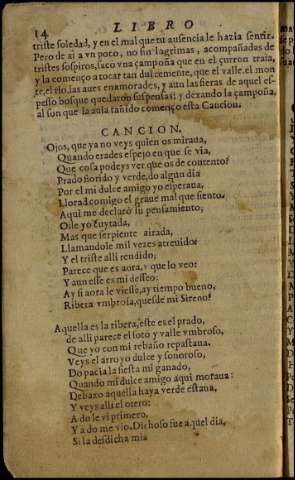 14 LIBRO
triste soledad, y en el mal que tu ausencia le hazia sentir.
Pero de ai a vn poco, no sin lagrimas, acompañadas de
tristes sospiros, saco vna çampoña que en el çurron traia,
y la començo a tocar tan dulcemente, que el valle, el mon
te, el rio, las aues enamoradas, y aun las fieras de aquel es-
pesso bosque quedaron suspensas: y dexando la çampoña,
al son que la auia tañido començo esta Cancion.
CANCION.
Ojos, que ya no veys quien os miraua,
Quando erades espejo en que se via,
Que cosa podeys ver que os de contento?
Prado florido y verde, do algun dia
Por el mi dulce amigo yo esperaua,
Llorad comigo el graue mal que siento.
Aqui me declarò su pensamiento,
Oile yo cuytada,
Mas que serpiente airada,
Llamandole mil vezes atreuido:
Y el triste alli rendido,
Parece que es aora, y que lo veo:
Y aun esse es mi desseo:
Ay si aora le viesse, ay tiempo bueno,
Ribera vmbrosa, ques de mi Sireno?
Aquella es la ribera, este es el prado,
de alli parece el soto y valle vmbroso,
Que yo con mi rebaño repastaua.
Veys el arroyo dulce y sonoroso,
Do pacia la siesta mi ganado,
Quando mi dulce amigo aqui moraua:
Debaxo aquella haya verde estaua,
Y veys alli el otero:
A do le vi primero,
Y a do me vio. Dichoso fue aquel dia,
Si la desdicha mia